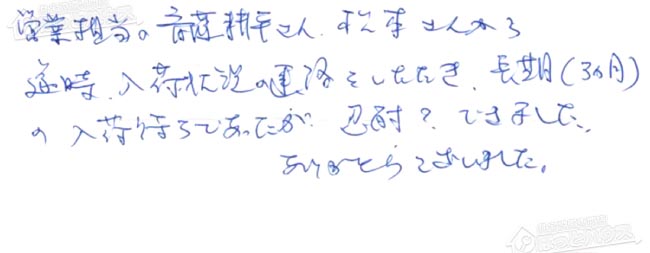 営業担当の斉藤耕平さん、松本さんから
逐時、入荷状況の連絡をいただき、長期(3ヵ月)
の入荷待ちであったが、忍耐?できました。
ありがとうございました。